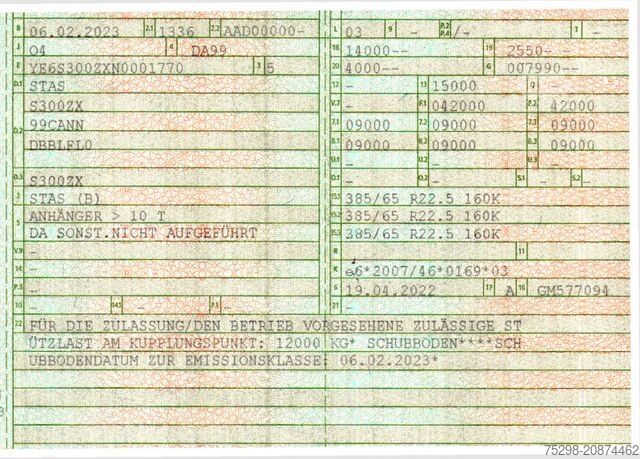 B 06.02.2023 2.1 1336 2.2 AAD00000-
J O4 4 DA99
E YE6S300ZXN0001770 3 5
D.1 STAS
S300ZX
D.2 99CANN
DBBLFL0
D.3 S300ZX
2 STAS (B)
5 ANHÄNGER > 10 T
DA SONST.NICHT AUFGEFÜHRT
V.9 -
14 -
P.3 -
10 - 14.1 - P.1 -
L 03 9 - P.2 P.4 -/- T -
18 14000-- 19 2550--
20 4000-- G 007990--
12 - 13 15000 Q -
V.7 - F.1 042000 F.2 42000
7.1 09000 7.2 09000 7.3 09000
8.1 09000 8.2 09000 8.3 09000
U.1 - U.2 - U.3 -
O.1 - O.2 - S.1 - S.2 -
15.1 385/65 R22.5 160K
15.2 385/65 R22.5 160K
15.3 385/65 R22.5 160K
R - 11
K e6*2007/46*0169*03
6 19.04.2022 17 A 16 GM577094
21 -
22 FÜR DIE ZULASSUNG/DEN BETRIEB VORGESEHENE ZULÄSSIGE ST
ÜTZLAST AM KUPPLUNGSPUNKT: 12000 KG* SCHUBBODEN****SCH
UBBODENDATUM ZUR EMISSIONSKLASSE: 06.02.2023*
75298-20874462